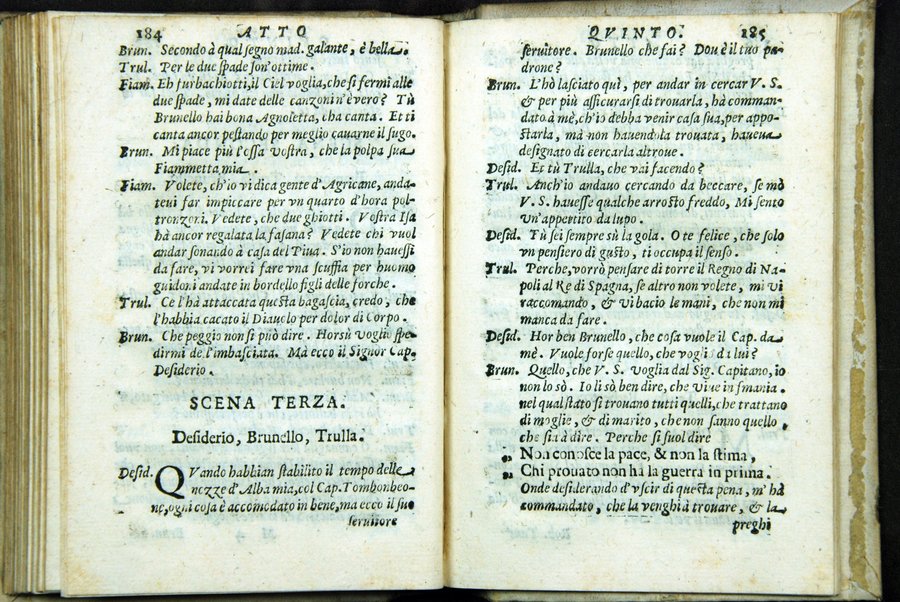 184 ATTO
Brun. Secondo à qual segno mad. galante, è bella.
Trul. Per le due spade son'ottime.
Fiam. Eh furbachiotti, il Ciel voglia, che si fermi alle
due spade, mi date delle canzoni n'è vero? Tù
Brunello hai bona Agnoletta, cha canta. Et ti
canta ancor pestando per meglio cauarne il sugo.
Brun. Mi piace più l'ossa vostra, che la polpa sua
Fiammetta mia.
Fiam. Volete, ch'io vi dica gente d'Agricane, anda-
teui far impiccare per vn quarto d'hora pol-
tronzoni. Vedete, che due ghiotti. Vostra Isa
hà ancor regalata la fasana? Vedete chi vuol
andar sonando à casa del Piua. S'io non hauessi
da fare, vi vorrei fare vna scuffia per huomo
guidoni andate in bordello figli delle forche.
Trul. Ce l'hà attaccata questa bagascia, credo, che
l'habbia cacato il Diauolo per dolor di Corpo.
Brun. Che peggio non si può dire. Horsù voglio spe-
dirmi de l'imbasciata. Mà ecco il Signor Cap.
Desiderio.
SCENA TERZA.
Desiderio, Brunello, Trulla.
Desid. QVando habbian stabilito il tempo delle
nozze d'Alba mia, col Cap. Tombonbeo-
ne, ogni cosa è accomodato in bene, ma ecco il suo
seruitore
QVINTO. 185
seruitore. Brunello che fai? Dou'è il tuo pa-
drone?
Brun. L'hò lasciato quì, per andar in cercar V. S.
& per più assicurarsi di trouarla, hà comman-
dato à mè, ch'io debba venir casa sua, per appo-
starla, mà non hauendola trouata, haueua
designato di cercarla altroue.
Desid. Et tù Trulla, che vai facendo?
Trul. Anch'io andauo cercando da beccare, se mò
V. S. hauesse qualche arrosto freddo, Mi sento
vn'appetito da lupo.
Desid. Tù sei sempre sù la gola. O te felice, che solo
vn pensiero di gusto, ti occupa il senso.
Trul. Perche, vorrò pensare di torre il Regno di Na-
poli al Re di Spagna, se altro non volete, mi vi
raccomando, & vi bacio le mani, che non mi
manca da fare.
Desid. Hor ben Brunello, che cosa vuole il Cap. da
mè. Vuole forse quello, che vogli di lui?
Brun. Quello, che V. S. voglia dal Sig. Capitano, io
non lo sò. Io li sò ben dire, che viue in smania.
nel qual stato si trouano tutti quelli, che trattano
di moglie, & di marito, che non sanno quello
che sia à dire. Perche si suol dire
„ Non conosce la pace, & non la stima,
„ Chi prouato non ha la guerra in prima.
Onde desiderando d'vscir di questa pena, m'hà
commandato, che la venghi à trouare, & la
preghi